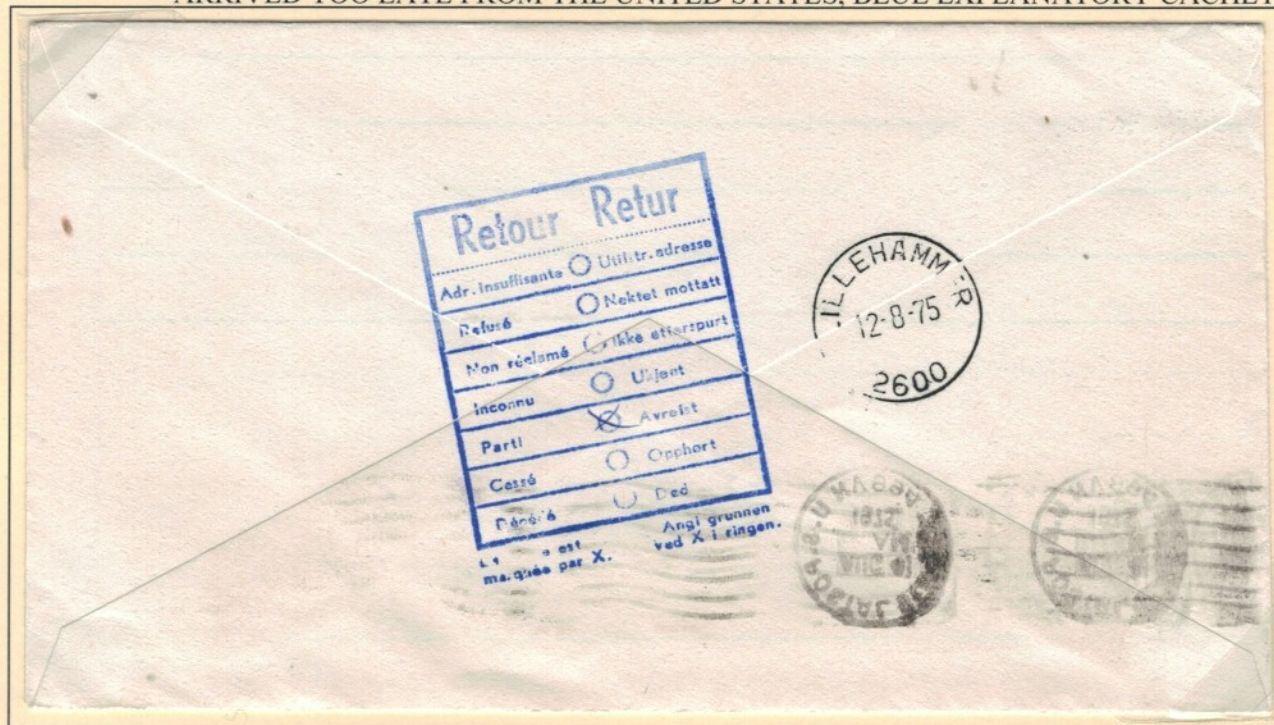 ARRIVED TOO LATE FROM THE UNITED STATES, BLUE EXPLANATORY CACHET
Retour Retur
Adr. insuffisante Util.str. adresse
Refusé Nektet mottatt
Non réclamé Ikke etterspurt
Inconnu Ukjent
Parti Avreist
Cessé Opphørt
Décédé Død
est
marquée par X.
Angi grunnen
ved X i ringen.
LILLEHAMMER
12-8-75
2600